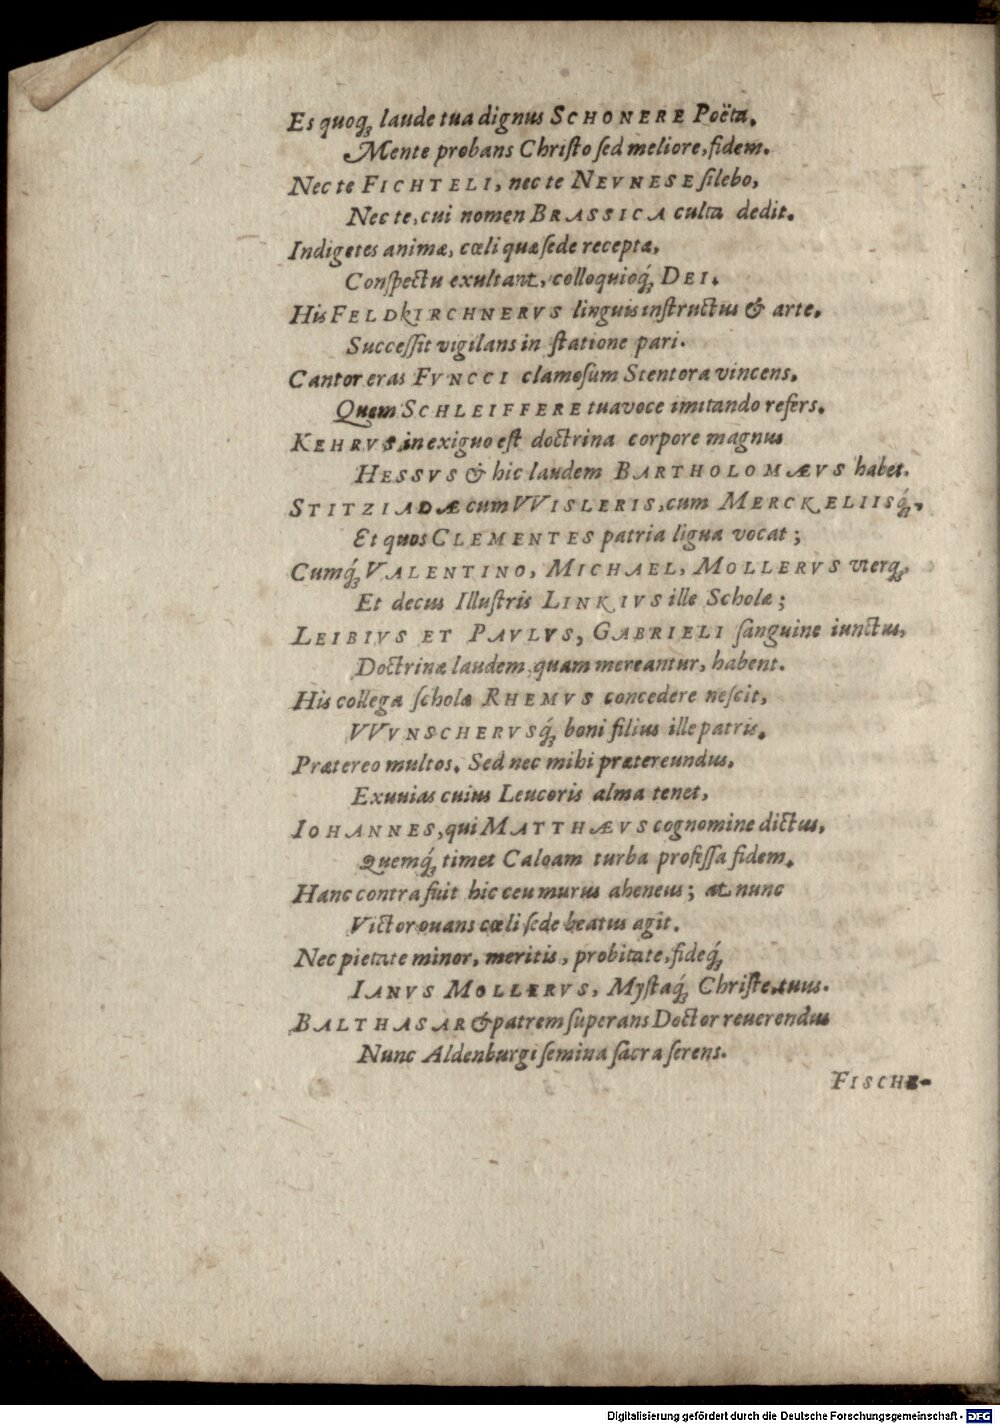 Es quoq́; laude tua dignus SCHONERE Poëta,
Mente probans Christo sed meliore, fidem.
Nec te FICHTELI, nec te NEVNESE silebo,
Nec te, cui nomen BRASSICA culta dedit.
Indigetes animæ, cœli quæ sede receptæ,
Conspectu exultant, colloquioq́; DEI.
His FELDKIRCHNERVS linguis instructus & arte,
Successit vigilans in statione pari.
Cantor eras FVNCCI clamosum Stentora vincens,
Quem SCHLEIFFERE tua voce imitando refers.
KEHRVS, in exiguo est doctrina corpore magnus
HESSVS & hic laudem BARTHOLOMÆVS habet.
STITZIADÆ cum VVISLERIS, cum MERCKELIISq́;,
Et quos CLEMENTES patria ligua vocat;
Cumq́; VALENTINO, MICHAEL, MOLLERVS vterq;,
Et decus Illustris LINKIVS ille Scholæ;
LEIBIVS ET PAVLVS, GABRIELI sanguine iunctus,
Doctrinæ laudem, quam mereantur, habent.
His collega schola RHEMVS concedere nescit,
VVVNSCHERVSq́; boni filius ille patris.
Prætereo multos. Sed nec mihi prætereundus,
Exuuias cuius Leucoris alma tenet,
IOHANNES, qui MATTHÆVS cognomine dictus,
Quemq́; timet Caloam turba professa fidem.
Hanc contra fuit hic ceu murus aheneus; at nunc
Victor ouans cœli sede beatus agit.
Nec pietate minor, meritis, probitate, fideq́;
IANVS MOLLERVS, Mystaq́; Christe, tuus.
BALTHASAR & patrem superans Doctor reuerendus
Nunc Aldenburgi semina sacra serens.
FISCHE-
Digitalisierung gefördert durch die Deutsche Forschungsgemeinschaft - DFG